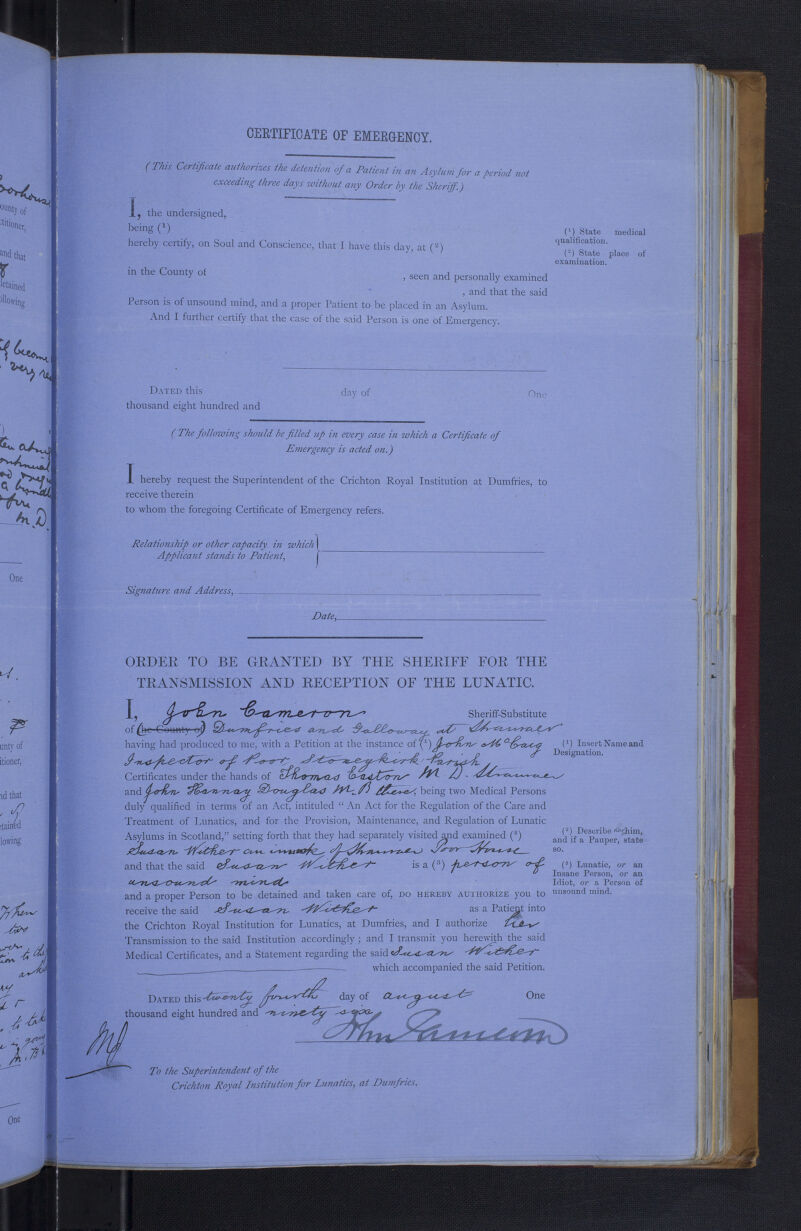 CERTIFICATE OF EMERGENCY.
(This Certificate authorizes the detention of a Patient in an Asylum for a period not
exceeding three days without any Order by the Sheriff.)
I, the undersigned,
being (¹)
hereby certify, on Soul and Conscience, that I have this day, at (²)
in the County of , seen and personally examined
, and that the said
Person is of unsound mind, and a proper Patient to be placed in an Asylum.
And I further certify that the case of the said Person is one of Emergency.
(¹) State medical
qualification.
(²) State place of
examination.
DATED this day of One
thousand eight hundred and
(The following should be filled up in every case in which a Certificate of
Emergency is acted on.)
I hereby request the Superintendent of the Crichton Royal Institution at Dumfries, to
receive therein
to whom the foregoing Certificate of Emergency refers.
Relationship or other capacity in which
Applicant stands to Patient,
Signature and Address,
Date,
ORDER TO BE GRANTED BY THE SHERIFF FOR THE
TRANSMISSION AND RECEPTION OF THE LUNATIC.
I, John Cameron Sheriff-Substitute
of (he County of) Dumfries and Galloway at Stranraer
having had produced to me, with a Petition at the instance of (¹) John McCaig
Inspector of Poor Stoneykirk Parish
Certificates under the hands of Thomas Easton M D. Stranraer
and John Hannay Douglas M.B there, being two Medical Persons
duly qualified in terms of an Act, intituled "An Act for the Regulation of the Care and
Treatment of Lunatics, and for the Provision, Maintenance, and Regulation of Lunatic
Asylums in Scotland," setting forth that they had separately visited and examined (²)
Susan Wither an inmate of Stranraer Poor House
and that the said Susan Wither is a (³) person of
unsound mind
and a proper Person to be detained and taken care of, DO HEREBY AUTHORIZE you to
receive the said Susan Wither as a Patient into
the Crichton Royal Institution for Lunatics, at Dumfries, and I authorize her
Transmission to the said Institution accordingly; and I transmit you herewith the said
Medical Certificates, and a Statement regarding the said Susan Wither
which accompanied the said Petition.
(¹) Insert Name and
Designation.
(²) Describe him,
and if a Pauper, state
so.
(³) Lunatic, or an
Insane Person, or an
Idiot, or a Person of
unsound mind.
DATED this twenty fourth day of august One
thousand eight hundred and ninety six
John Cameron
To the Superintendent of the
Crichton Royal Institution for Lunatics, at Dumfries.